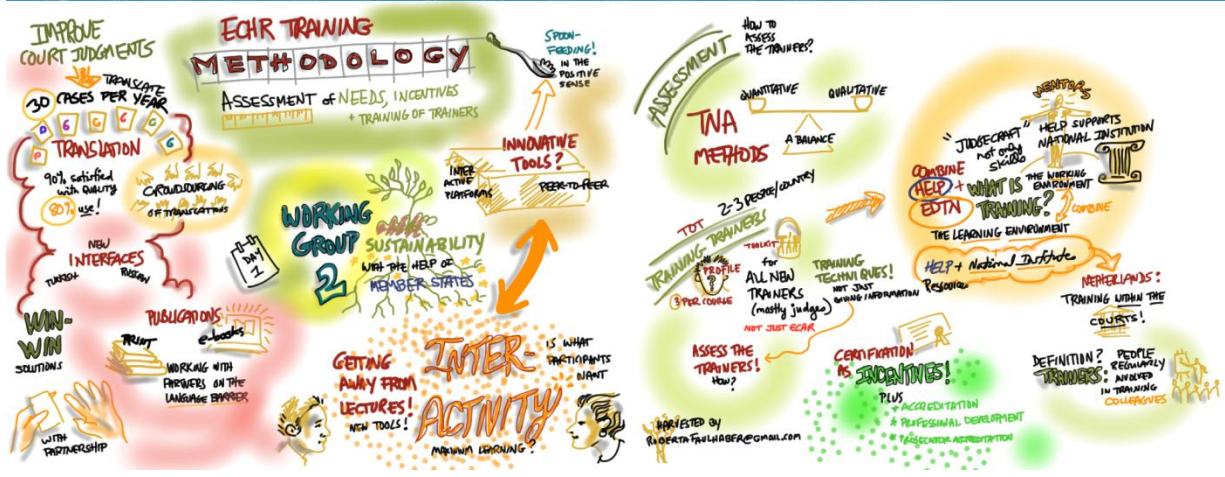 IMPROVE
COURT JUDGMENTS
TRANSLATE
30 CASES PER YEAR
TRANSLATION
90% satisfied
with quality
80% use!
CROWDSOURCING
OF TRANSLATIONS
NEW
INTERFACES
TURKISH
RUSSIAN
WIN-
WIN
SOLUTIONS
WITH
PARTNERSHIP
PUBLICATIONS
PRINT
e-books
WORKING WITH
PARTNERS ON THE
LANGUAGE BARRIER
ECHR TRAINING
METHODOLOGY
ASSESSMENT of NEEDS, INCENTIVES
+ TRAINING OF TRAINERS
SPOON-
FEEDING!
IN THE
POSITIVE
SENSE
INNOVATIVE
TOOLS?
INTER
ACTIVE
PLATFORMS
PEER-TO-PEER
DAY
1
WORKING
GROUP
2
SUSTAINABILITY
WITH THE HELP OF
MEMBER STATES
GETTING
AWAY FROM
LECTURES!
NEW TOOLS!
INTER-
ACTIVITY
IS WHAT
PARTICIPANTS
WANT
MAXIMUM LEARNING?
ASSESSMENT
HOW TO
ASSESS
THE TRAINERS?
TNA
METHODS
QUANTITATIVE
QUALITATIVE
A BALANCE
TOT
2-3 PEOPLE/COUNTRY
TRAINING-TRAINERS
PROFILE
?
3 PER COURSE
TOOLKIT
for
ALL NEW
TRAINERS
(mostly judges)
NOT JUST ECHR
TRAINING
TECHNIQUES!
NOT JUST
GIVING INFORMATION
ASSESS THE
TRAINERS!
HOW?
HARVESTED BY
ROBERTAFAULHABER@GMAIL.COM
CERTIFICATION
AS INCENTIVES!
PLUS
+ ACCREDITATION
* PROFESSIONAL DEVELOPMENT
* PROSECUTOR ACCREDITATION
MENTORS
"JUDGECRAFT"
not only
skills
HELP SUPPORTS
NATIONAL INSTITUTION
COMBINE
HELP +
EDTN
WHAT IS
TRAINING?
THE WORKING
ENVIRONMENT
COMBINE
THE LEARNING ENVIRONMENT
HELP + National Institute
Resource
NETHERLANDS:
TRAINING WITHIN THE
COURTS!
DEFINITION?
TRAINERS:
PEOPLE
REGULARLY
INVOLVED
IN TRAINING
COLLEAGUES